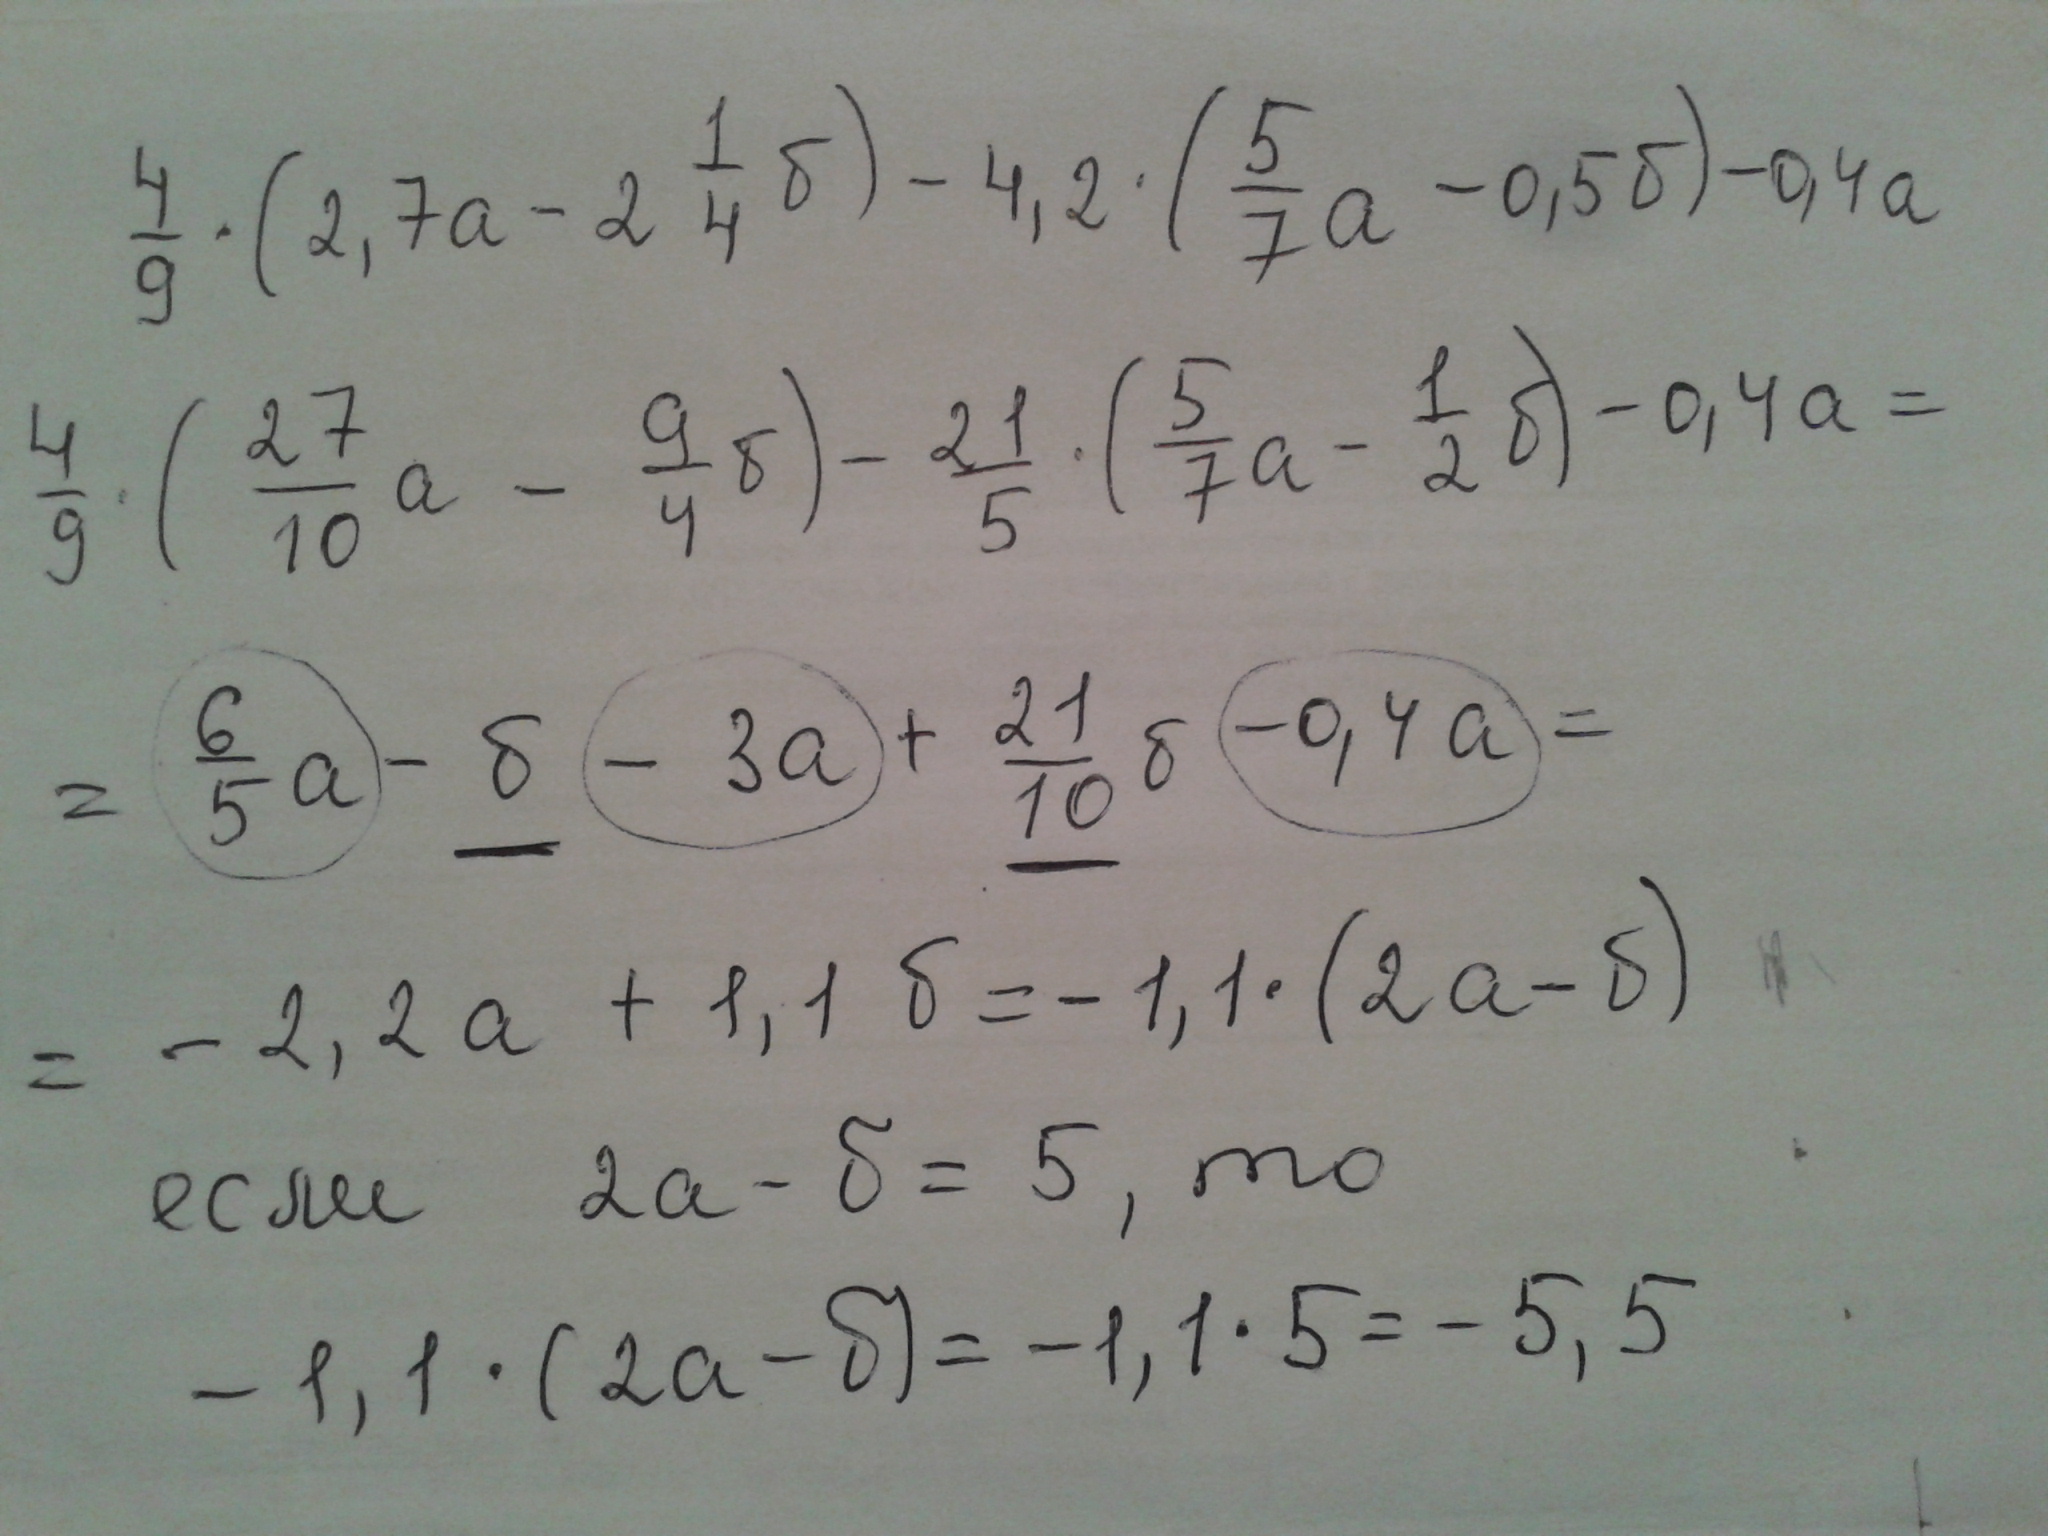 4/9 · (2,7а - 2 1/4 б) - 4,2 · (5/7 а - 0,5б) - 0,4а
4/9 · (27/10 а - 9/4 б) - 21/5 · (5/7 а - 1/2 б) - 0,4а =
= 6/5 а - б - 3а + 21/10 б - 0,4а =
= - 2,2а + 1,1б = - 1,1 · (2а - б)
если 2а - б = 5, то
- 1,1 · (2а - б) = - 1,1 · 5 = - 5,5